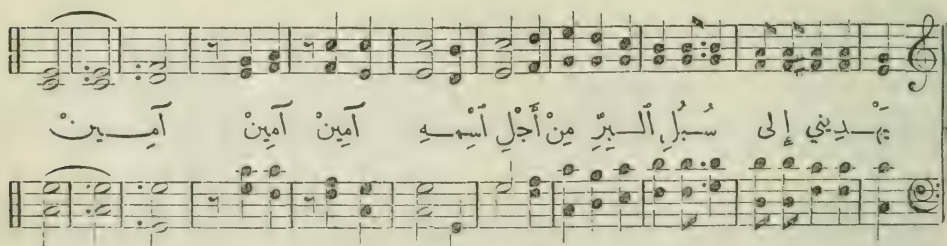 يَهْـدِيني إِلى سُبُلِ ٱلْـبِرِّ مِنْ أَجْلِ ٱسْمِـهِ آمِينْ آمِينْ آمِـينْ